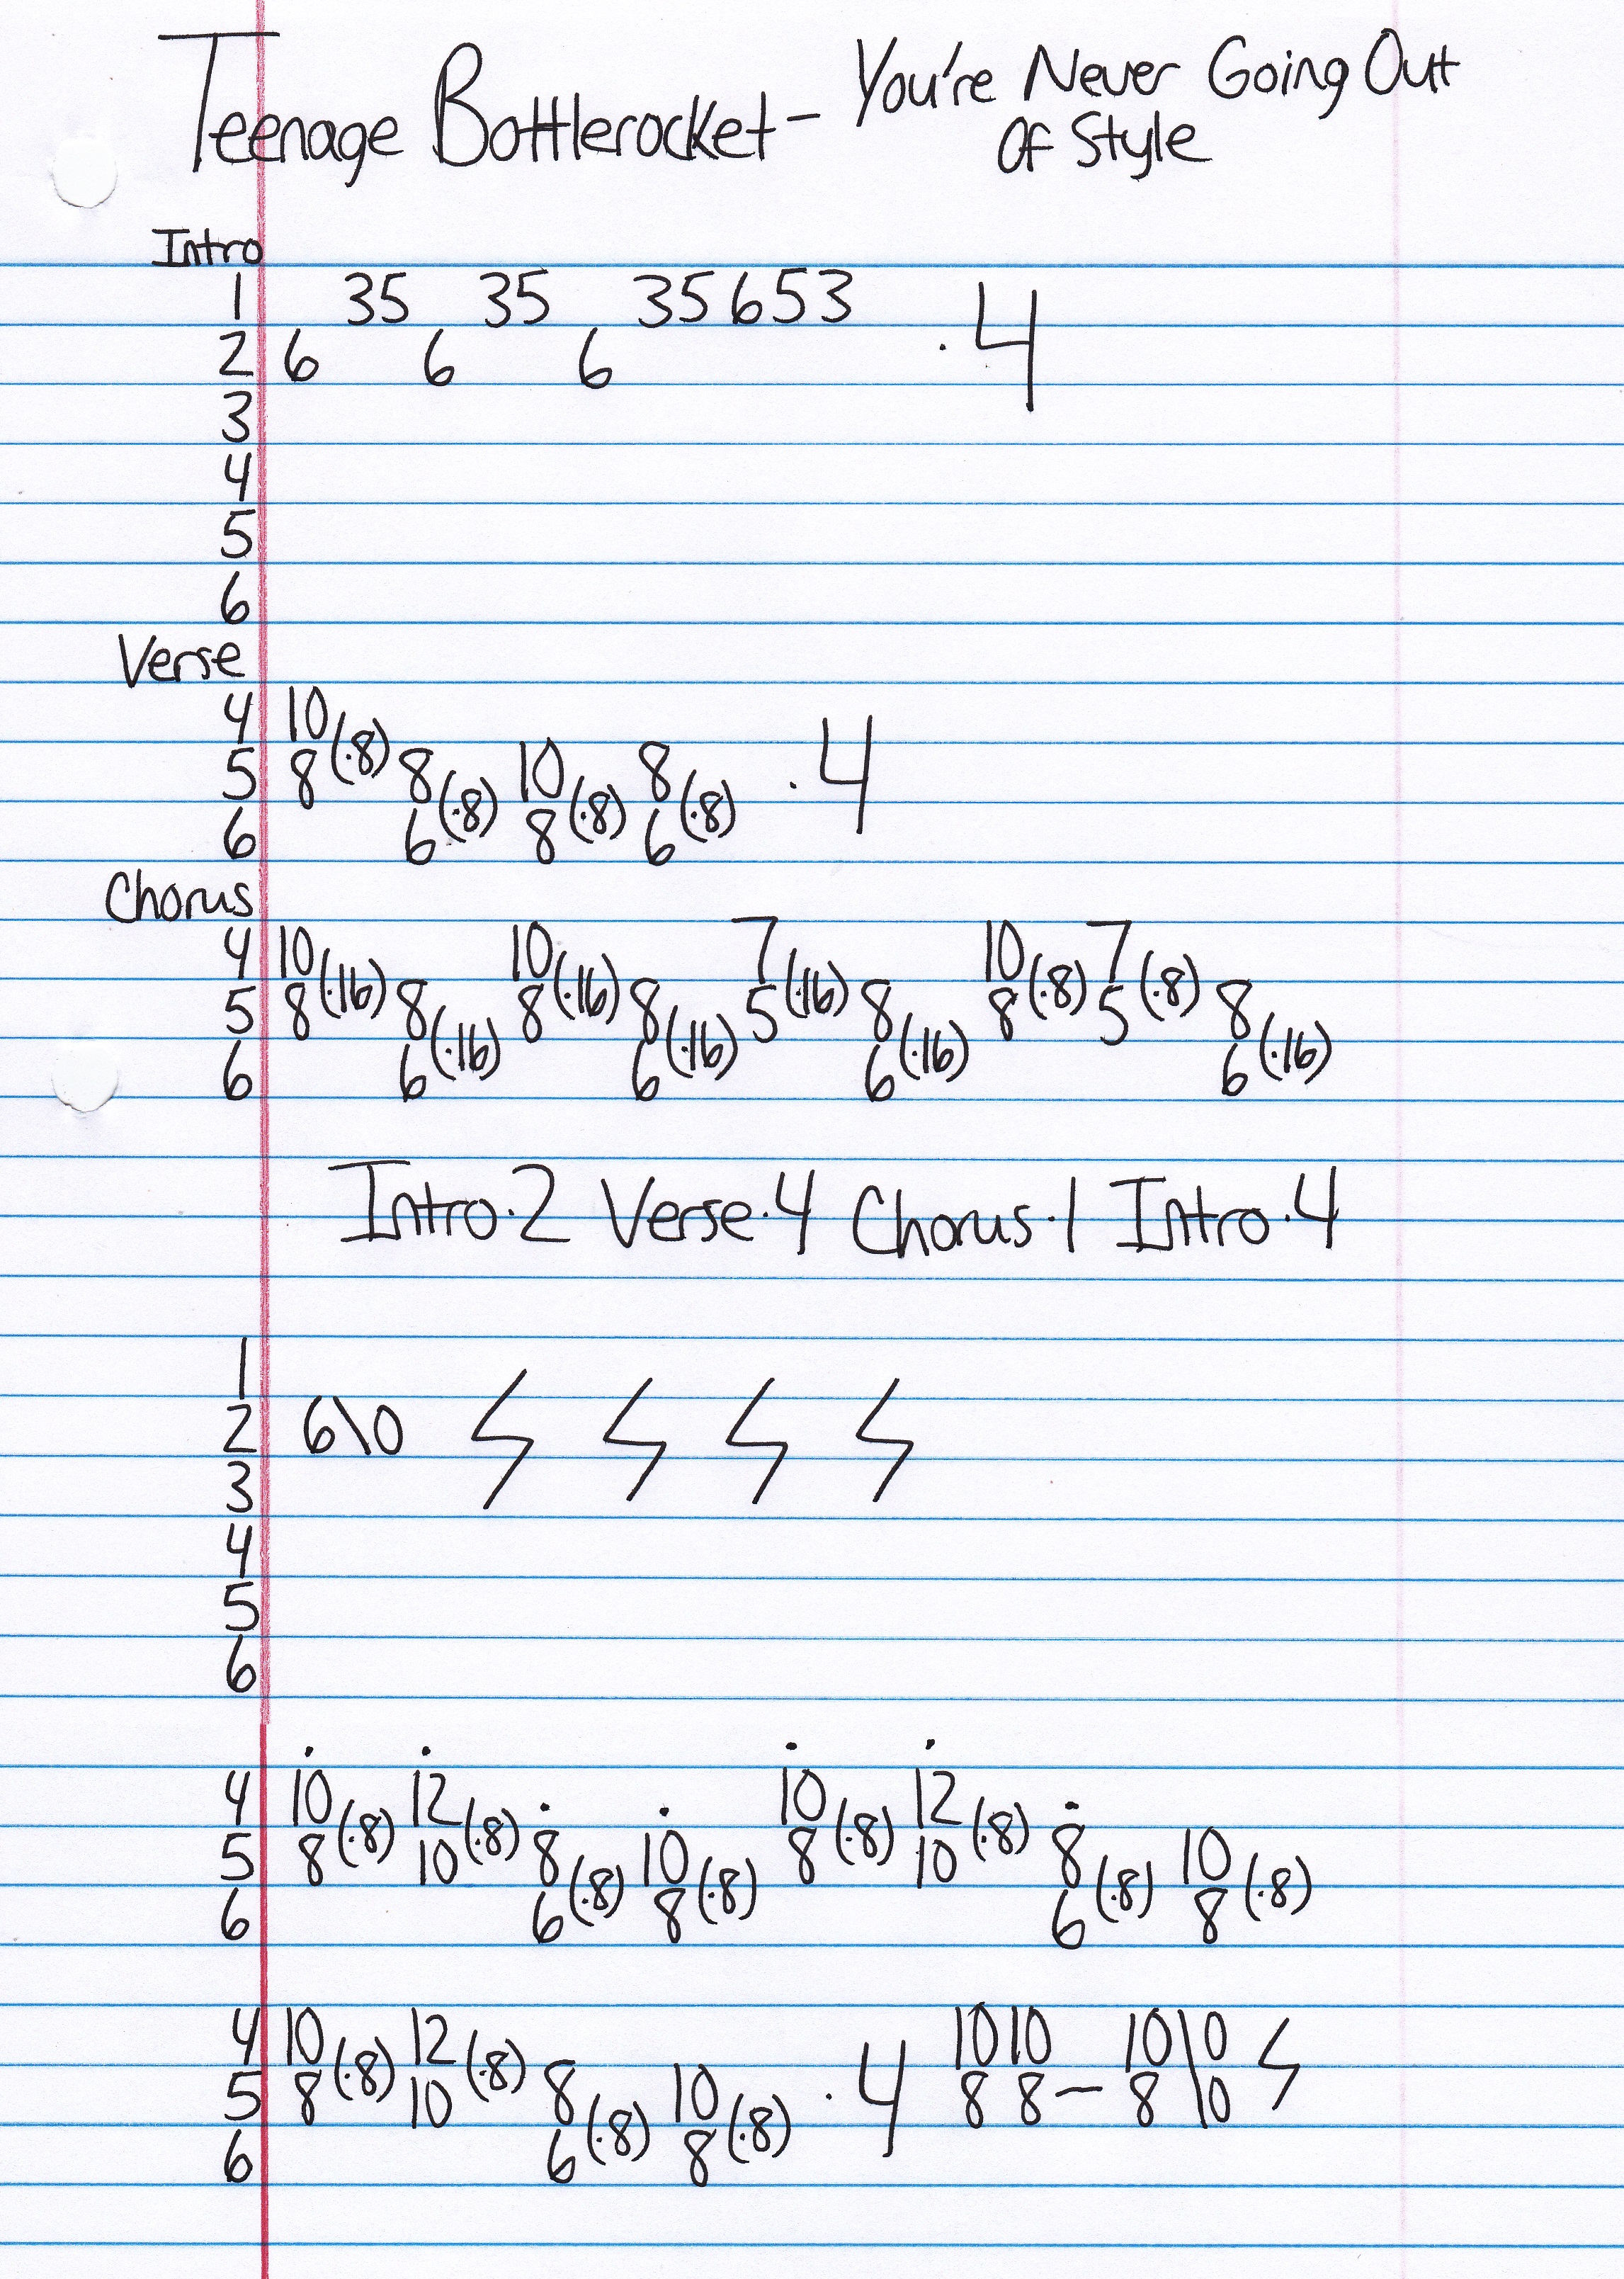 Teenage Bottlerocket - You're Never Going Out
Of Style
Intro
1 35 35 35653 .4
2 6 6 6
3
4
5
6
Verse
4 10
5 8(.8) 8 10 8 .4
6 6(.8) 8(.8) 6(.8)
Chorus
4 10 10 7 10 7
5 8(.16) 8 8(.16) 8 5(.16) 8 8(.8) 5(.8) 8
6 6(.16) 6(.16) 6(.16) 6(.16)
Intro.2 Verse.4 Chorus.1 Intro.4
1
2 6\0
3
4
5
6
4 10 12 10 12
5 8(.8) 10(.8) 8 10 8(.8) 10(.8) 8 10
6 6(.8) 8(.8) 6(.8) 8(.8)
4 10 12 10 10 10\0
5 8(.8) 10(.8) 8 10 .4 8 8 — 8\0
6 6(.8) 8(.8)